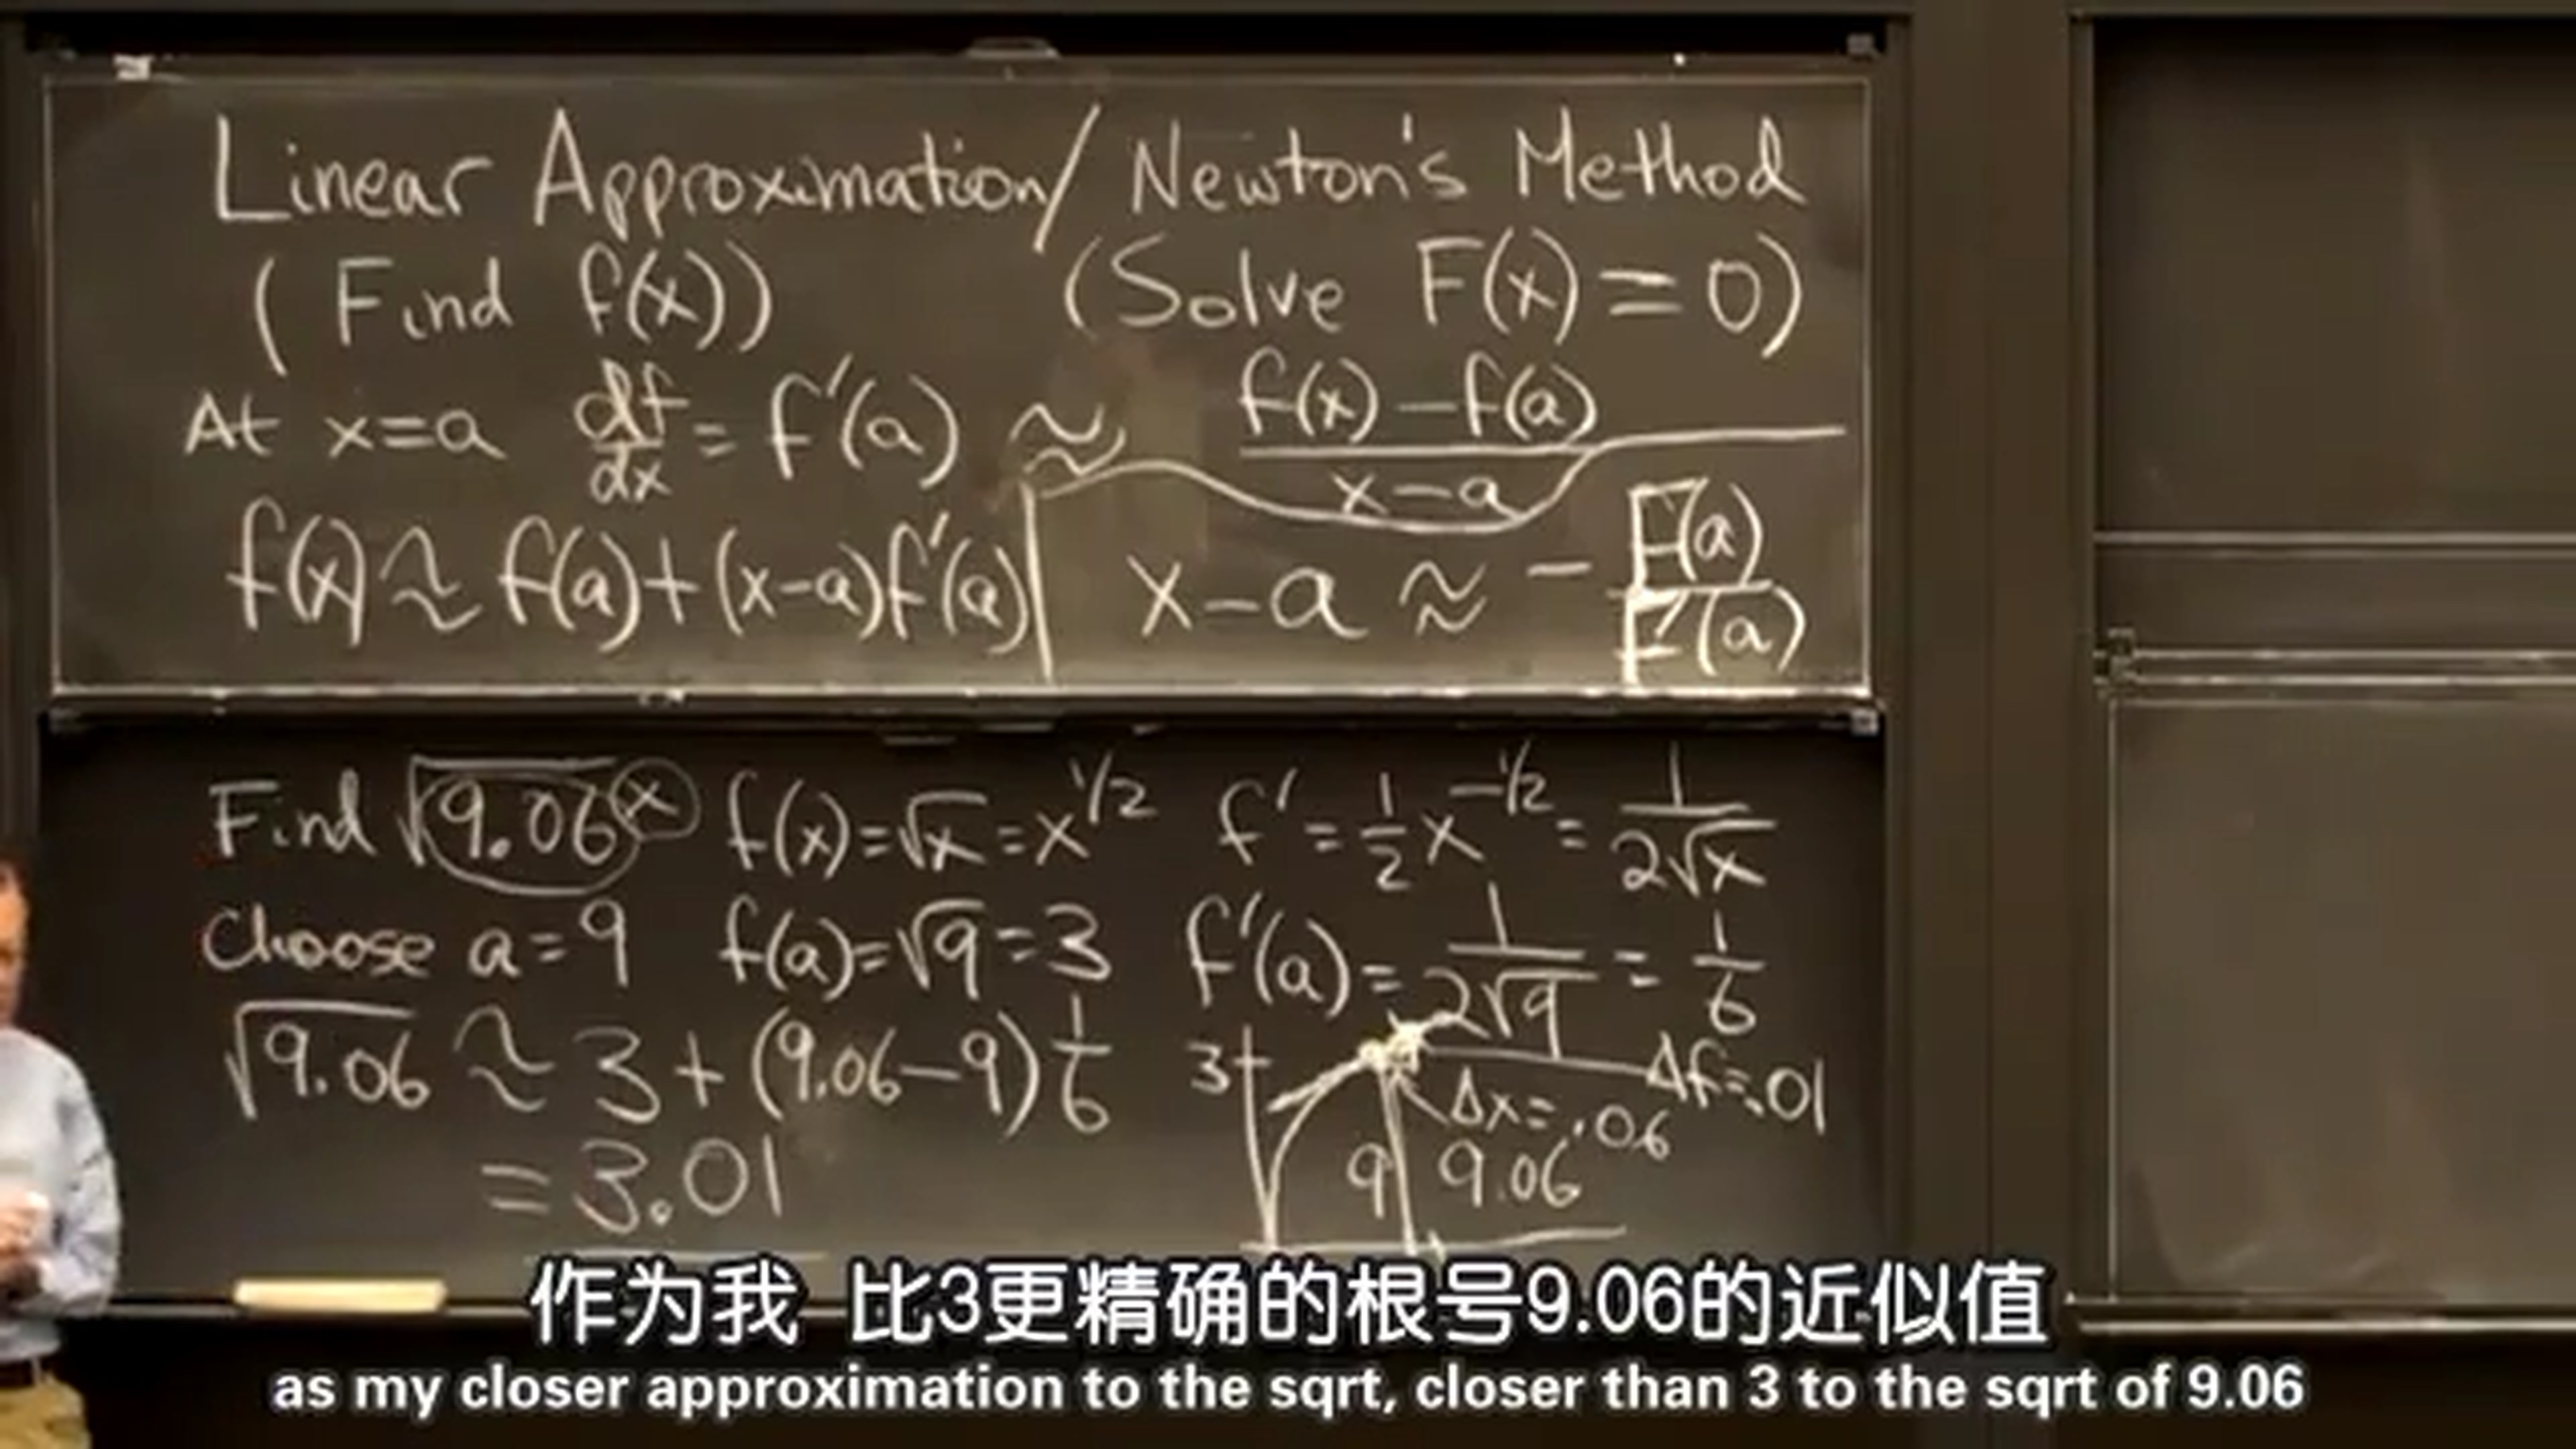 Linear Approximation/ Newton's Method
(Find f(x)) (Solve F(x)=0)
At x=a df/dx = f'(a) ≈ f(x)-f(a)/x-a
f(x) ≈ f(a)+(x-a)f'(a) x-a ≈ - F(a)/F'(a)
Find √9.06 x f(x)=√x=x^1/2 f'=1/2 x^-1/2=1/2√x
Choose a=9 f(a)=√9=3 f'(a)=1/2√9=1/6
√9.06 ≈ 3+(9.06-9)1/6
=3.01
3
Δf=.01
Δx=.06
9 9.06
作为我 比3更精确的根号9.06的近似值
as my closer approximation to the sqrt, closer than 3 to the sqrt of 9.06